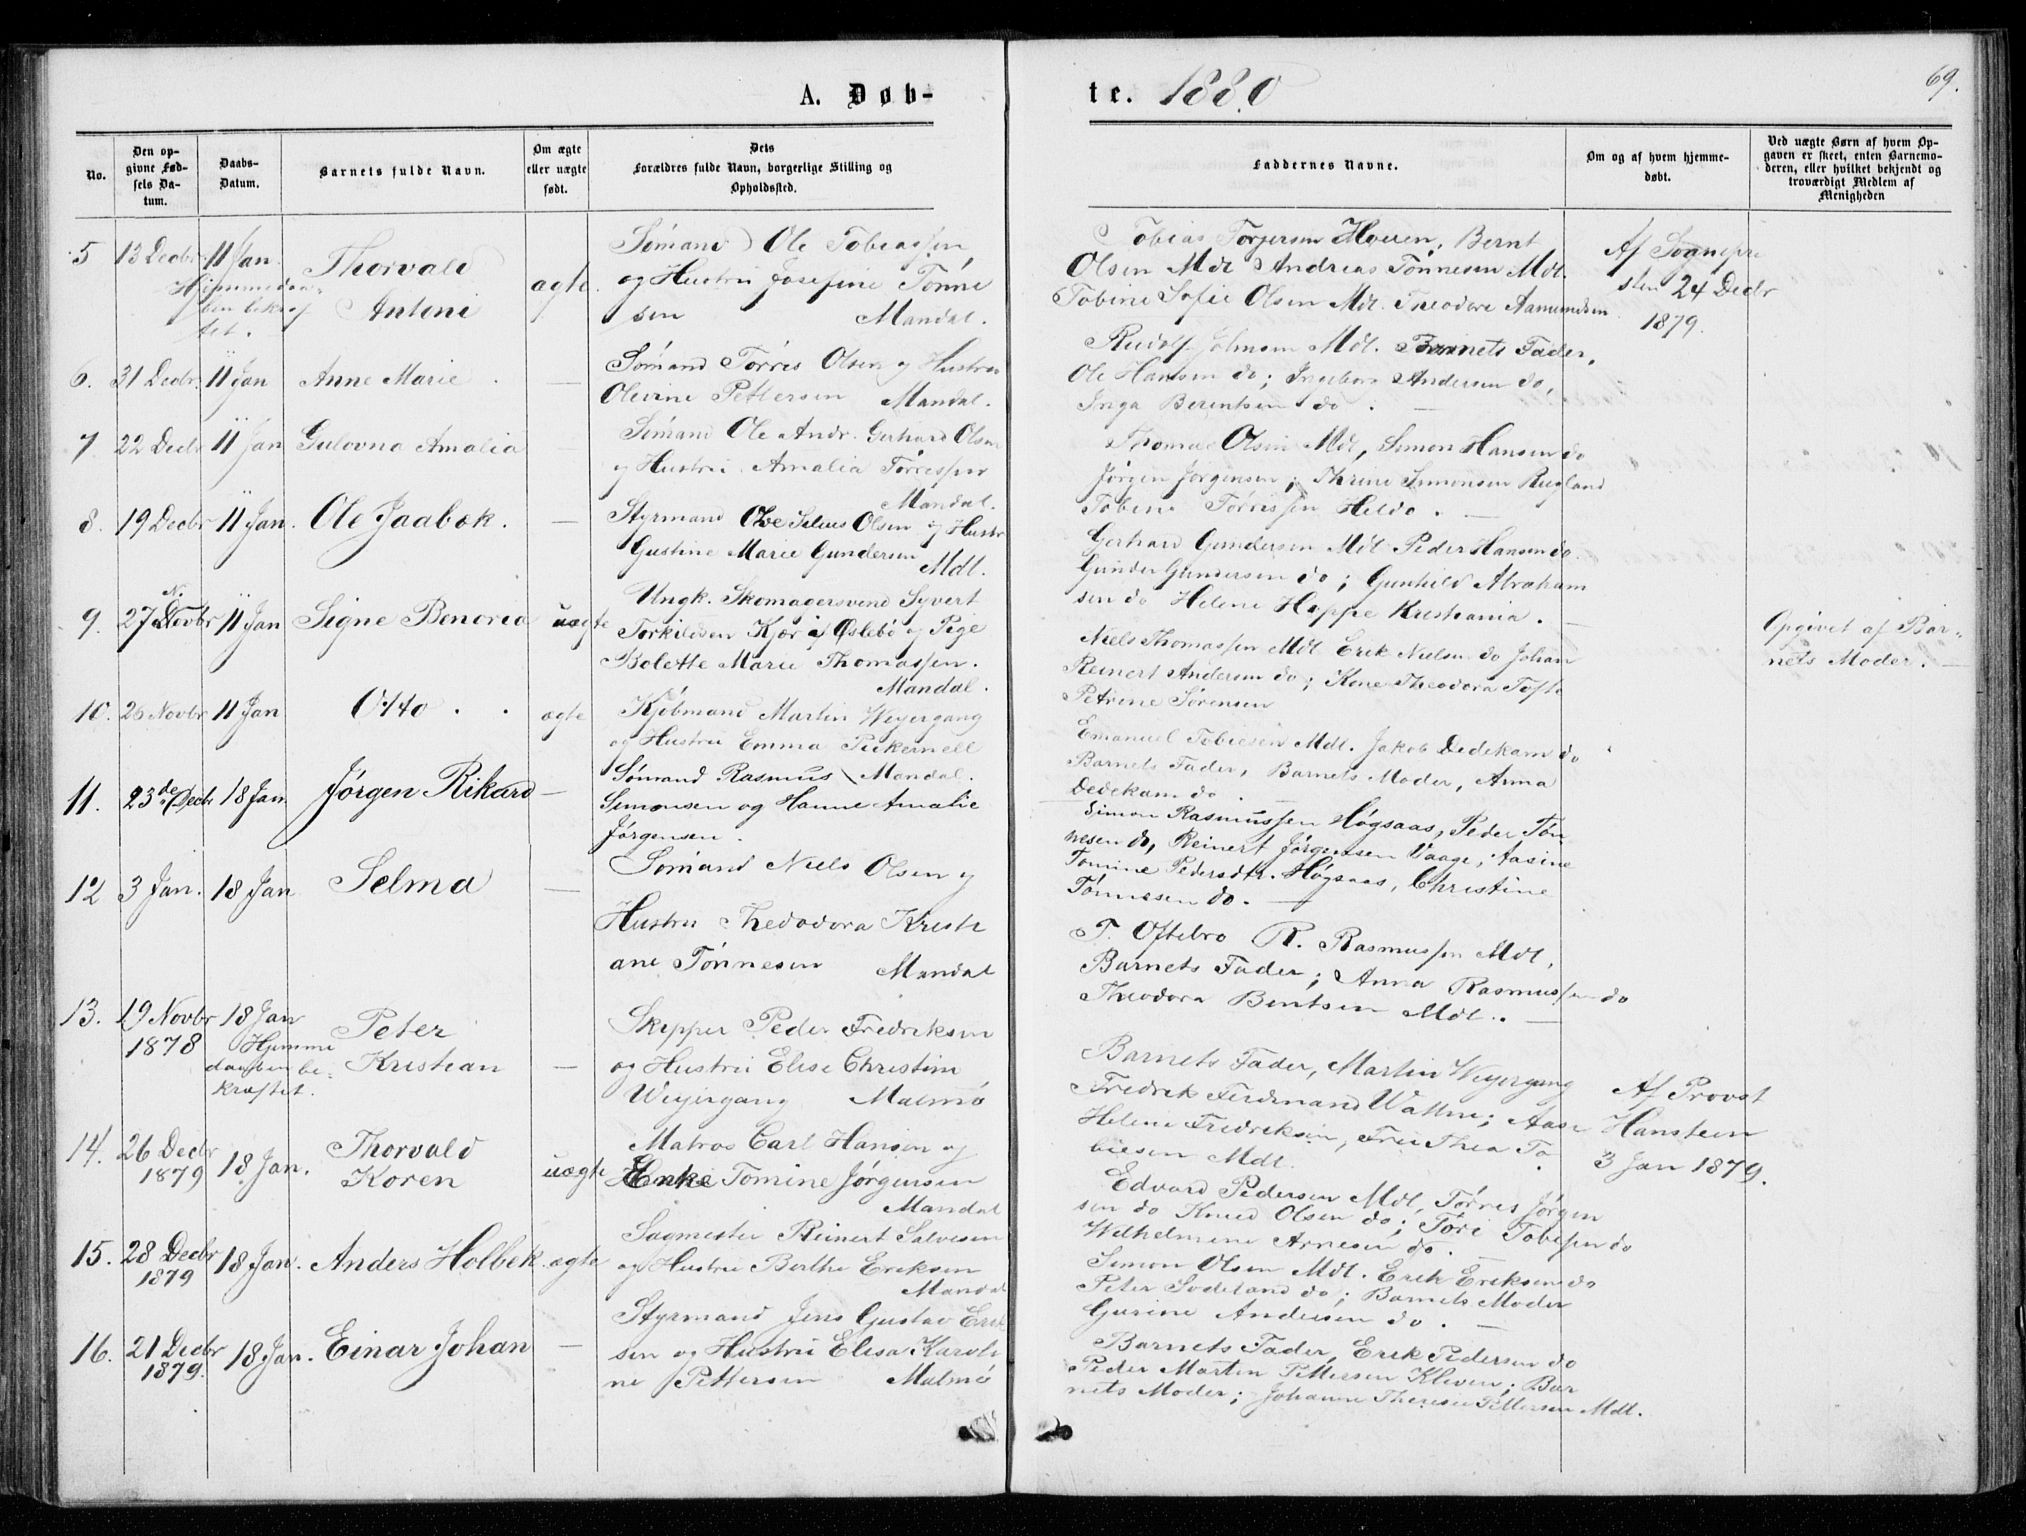 A. Døb-
te. 1880
69.
No.
Den op-
givne Fød-
sels Da-
tum.
Daabs-
Datum.
Barnets fulde Navn.
Om ægte
eller uægte
født.
Dets
Forældres fulde Navn, borgerlige Stilling og
Opholdssted.
Faddernes Navne.
Om og af hvem hjemme-
døbt.
Ved uægte Børn af hvem Op-
gaven er skeet, enten Barnemo-
deren, eller hvilket bekjendt og
troværdigt Medlem af
Menigheden
5 13 Decbr 11 Jan.
Hjemmedaa-
ben bekræf
tet.
Thorvald
Antoni
ægte.
Sømand Ole Tobiassen
og Hustru Josefine Tønne
sen Mandal.
Tobias Torjersen Bernt
Olsen Mdl Andreas Tønnesen Mdl.
Tobine Sofie Olsen Mdl. Theodore Aanundsen
Af Sognepre
sten 24 Decbr
1879.
6. 31 Decbr. 11 Jan Anne Marie . —
Sømand Tørres Olsen og Hustru
Olivine Pettersen Mandal.
Rudolf Johnsen Mdl. Barnets Fader,
Ole Hansen do; Ingeborg Andersen do,
Inga Berentsen do . —
7 22 Decbr 11 Jan Gulovna Amalia —
Sømand Ole Andr. Gerhard Olsen
og Hustru Amalia Tørressen
Mandal.
Thomas Olsen Mdl, Simon Hansen do
Jørgen Jørgensen; Thrine Simonsen Rugland
Tobine Tørrissen Hildo . —
8. 19 Decbr 11 Jan. Ole Jaabæk. —
Styrmand Ole Silius Olsen og Hustru
Gustine Marie Gundersen
Mdl.
Gerhard Gundersen Mdl Peder Hansen do.
Gunder Gundersen do; Gunhild Abraham
sen do Helene Hoppe Kristiania . —
9. 27 Novbr 11 Jan Signe Benoria uægte
Ungk. Skomagersvend Syvert
Torkildsen Kjær i Øslebø og Pige
Bolette Marie Thomassen.
Mandal.
Niels Thomassen Mdl Erik Nielsen do Johan
Reinert Andersen do; Kone Theodora Tofte
Petrine Sørensen
Opgivet af Bar-
nets Moder. —
10. 26 Novbr 11 Jan Otto . . ægte
Kjøbmand Martin Weyergang
og Hustru Emma Pickernell
Mandal.
Emanuel Tobiesen Mdl. Jakob Dedekam do
Barnets Fader, Barnets Moder, Anna
Dedekam do . —
11. 23de Decbr 18 Jan. Jørgen Rikard —
Sømand Rasmus
Simonsen og Hanne Amalie
Jørgensen.
Simon Rasmussen Høgsaas, Peder Tøn-
nesen do, Reinert Jørgensen Vaage, Aasine
Tomine Pedersdtr. Høgsaas, Christine
Tønnesen do. —
12 3 Jan. 18 Jan Selma —
Sømand Niels Olsen og
Hustru Thedodora Kristi
ane Tønnesen Mandal
T. Oftebro R. Rasmussen Mdl,
Barnets Fader; Anna Rasmussen do
Theodora Bentsen Mdl. . —
13. 19 Novbr 18 Jan
1878 Hjemme
daaben be-
kræftet.
Peter
Kristian —
Skipper Peder Fredriksen
og Hustru Elise Christine
Weyergang Malmø
Barnets Fader, Martin Weyergang
Fredrik Ferdinand Wattne; Aase
Helene Fredriksen, Fru Thea To
biesen Mdl.
Af Provst
Hansteen
3 Jan 1879.
14. 26 Decbr
1879 18 Jan.
Thorvald
Koren uægte
Matros Carl Hansen og
Enke Tomine Jørgensen
Mandal
Edvard Pedersen Mdl, Tørres Jørgen
sen do Knud Olsen do; Tori Tobisen do
Wilhelmine Arnesen do. —
15. 28 Decbr
1879 18 Jan. Anders Holbek ægte
Sagmester Reinert Salvesen
og Hustru Berthe Eriksen
Mandal
Simon Olsen Mdl. Erik Eriksen do
Peter Sodeland do; Barnets Moder
Gurine Andersen do. —
16. 21 Decbr
1879. 18 Jan. Einar Johan —
Styrmand Jens Gustav Erik
sen og Hustru Elisa Karoli
ne Pettersen Malmø
Barnets Fader, Erik Pedersen do
Peder Martin Pettersen Kleven; Bar
nets Moder; Johanne Therese Pettersen Mdl.